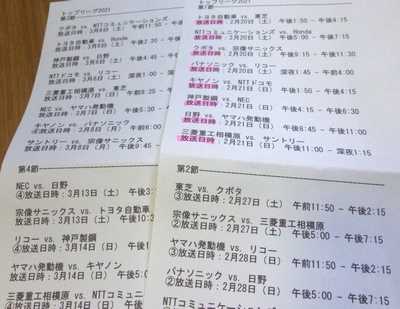 トップリーグ2021
第3節
クボタ vs. NTTコミュニケーションズ
放送日時：3月6日（土） 午前11:50 -
トヨタ自動車 vs. Honda
放送日時：3月6日（土） 午後2:30 -
神戸製鋼 vs.
放送日時：3月6日（土） 午後4:50 -
NTTドコモ vs. リコー
放送日時：3月6日（土） 深夜1:00 -
三菱重工相模原 vs. 東芝
放送日時：3月7日（日） 午後2:25 -
NEC vs. ヤマハ発動機
放送日時：3月7日（日） 午後5:30 -
キヤノン vs. パナソニック
放送日時：3月8日（月） 午前6:00
サントリー vs. 宗像サニックス
放送日時：3月8日（月） 午後9:45 -
第4節
NEC vs. 日野
④放送日時：3月13日（土） 午後
宗像サニックス vs. トヨタ自動車
④放送日時：3月13日（土） 午後
リコー vs. 神戸製鋼
④放送日時：3月14日（日） 午後
ヤマハ発動機 vs. キヤノン
放送日時：3月14日（日） 午後5:
三菱重工相模原 vs. NTTコミュニ
④放送日時：3月14日（日） 午後
トップリーグ2021
第1節
トヨタ自動車 vs. 東芝
放送日時：2月20日（土） 午後12:50 - 午後3:15
NTTコミュニケーションズ vs. Honda
放送日時：2月20日（土） 午後4:50 - 午後7:15
クボタ vs. 宗像サニックス
放送日時：2月20日（土） 午後9:15 - 午後11:30
パナソニック vs. リコー
放送日時：2月20日（土） 深夜1:45 - 午前4:00
キヤノン vs. NTTドコモ
放送日時：2月21日（日）
神戸製鋼 vs. NEC
放送日時：2月21日（日） 午後2:15 - 午後4:30
日野 vs. ヤマハ発動機
放送日時：2月21日（日） 午後4:50 - 午後7:15
三菱重工相模原 vs. サントリー
放送日時：2月21日（日） 午後11:00 - 深夜1:15
第2節
東芝 vs. クボタ
③放送日時：2月27日（土） 午前11:50 - 午後2:15
宗像サニックス vs. 三菱重工相模原
③放送日時：2月27日（土） 午後5:00 - 午後7:15
ヤマハ発動機 vs. リコー
③放送日時：2月28日（日） 午前11:50 - 午後2:15
パナソニック vs. 日野
②放送日時：2月28日（日） 午後5:00 - 午後7:15
NTTコミュニケーションズ